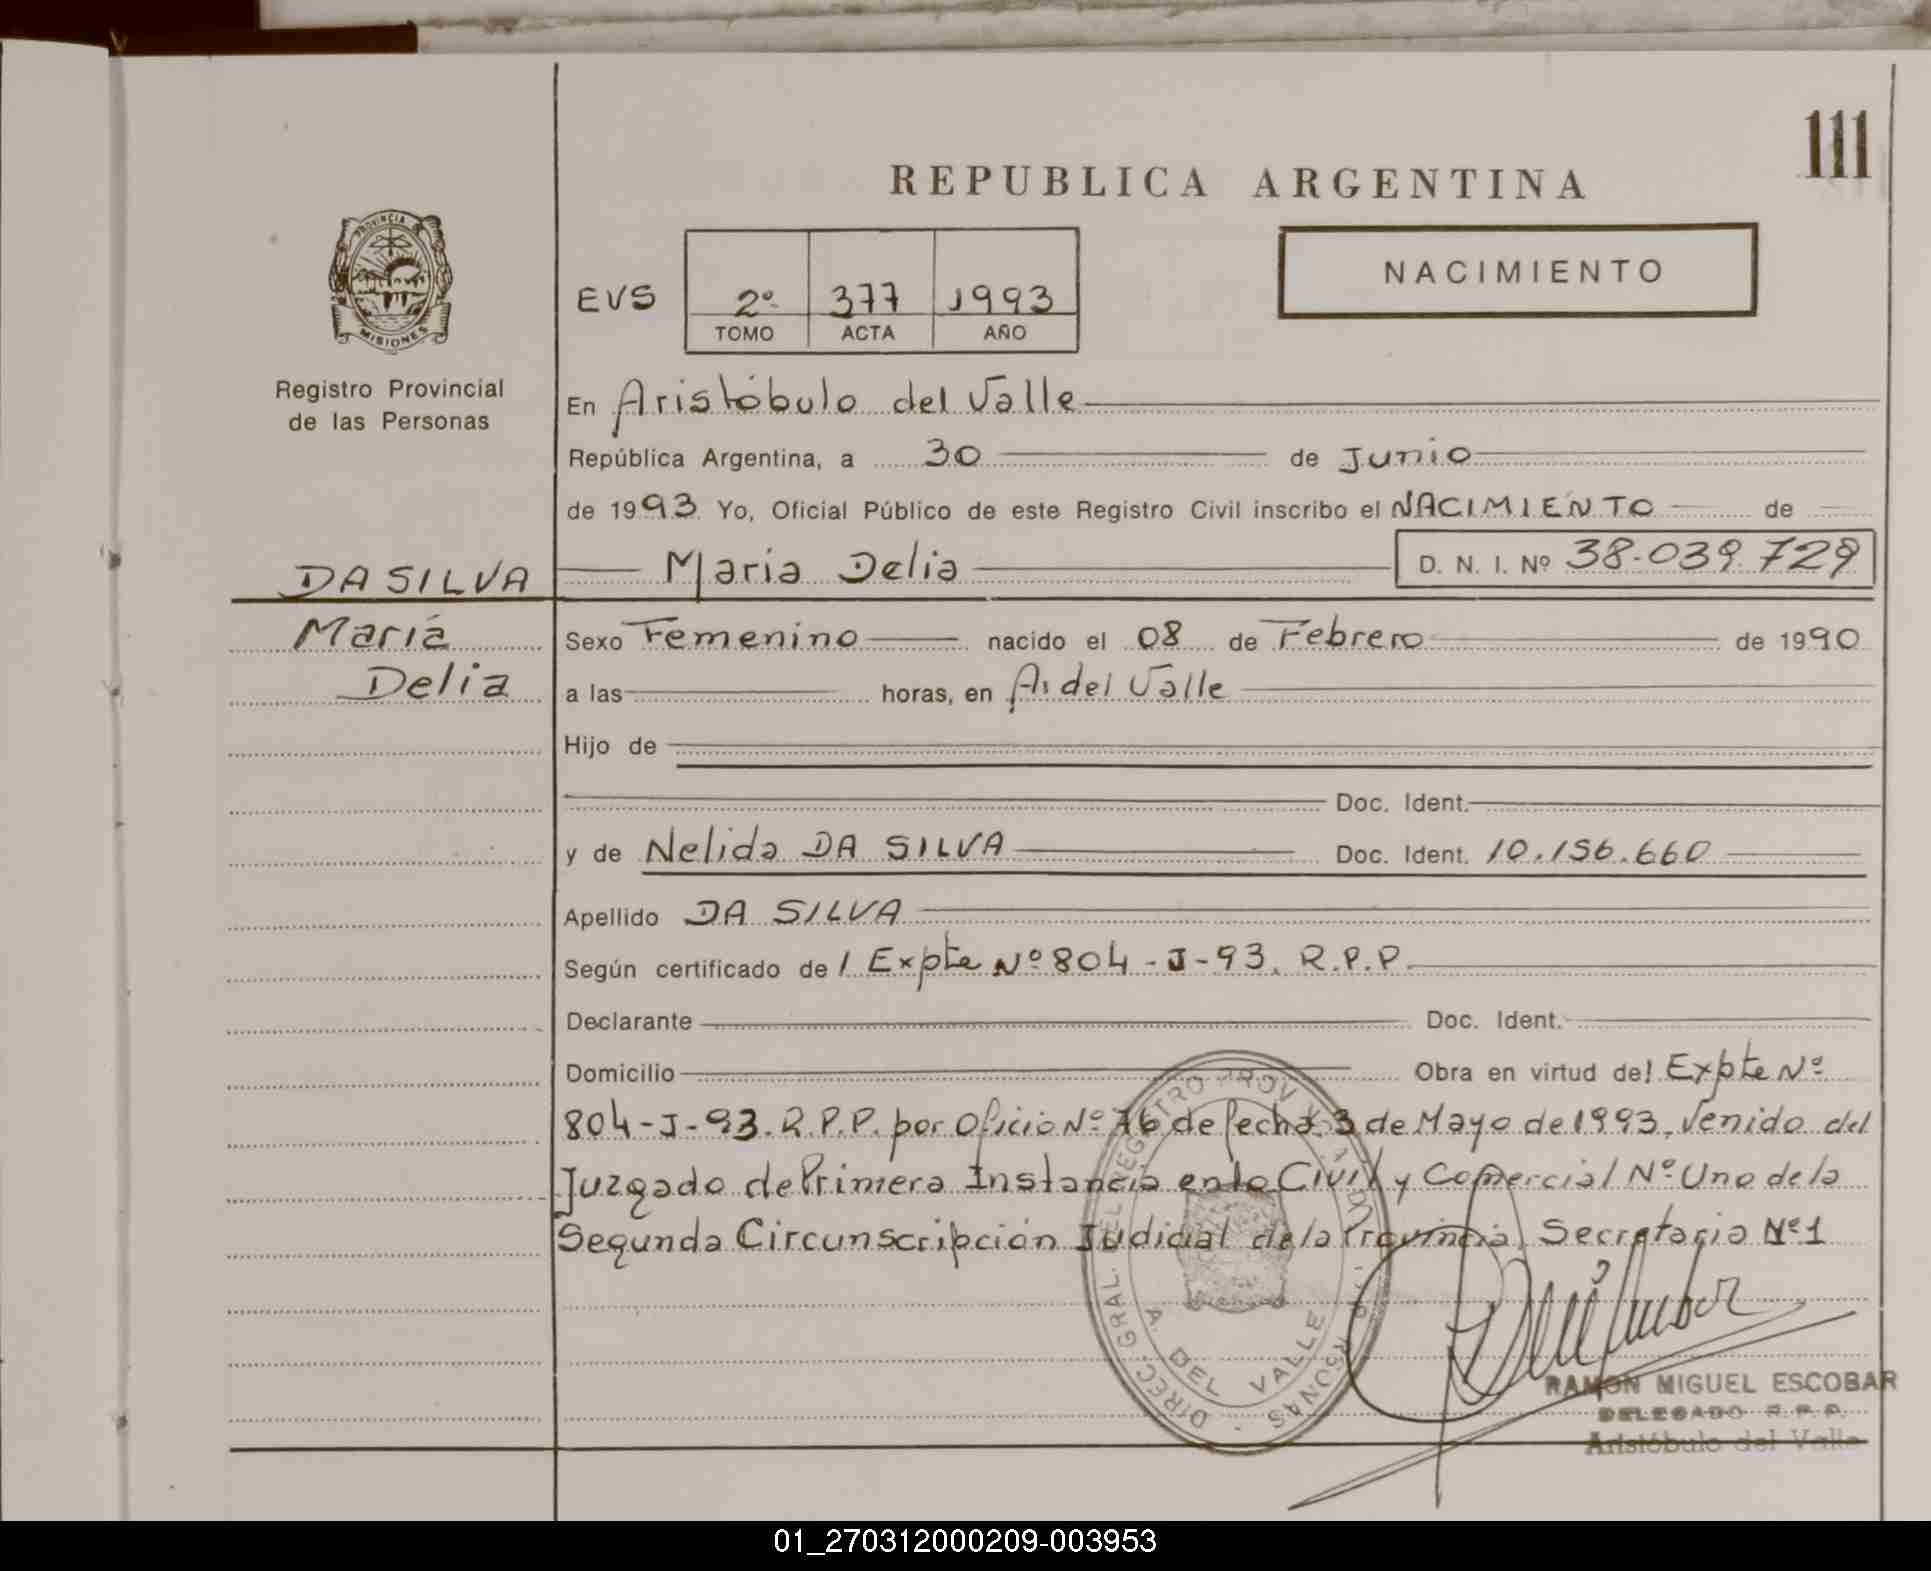 111
REPUBLICA ARGENTINA
PROVINCIA DE
MISIONES
Registro Provincial
de las Personas
NACIMIENTO
EVS 2º 377 1993
TOMO ACTA AÑO
En Aristóbulo del Valle
República Argentina, a 30 de Junio
de 1993 Yo, Oficial Público de este Registro Civil inscribo el NACIMIENTO de
DA SILVA Maria Delia D. N. I. Nº 38.039.729
Maria Sexo Femenino nacido el 08 de Febrero de 1990
Delia a las horas, en A. del Valle
Hijo de
Doc. Ident.
y de Nelida DA SILVA Doc. Ident. 10.156.660
Apellido DA SILVA
Según certificado de l Expte Nº 804-J-93. R.P.P.
Declarante Doc. Ident.
Domicilio Obra en virtud del Expte Nº
804-J-93. R.P.P. por Oficio Nº 76 de fecha 3 de Mayo de 1993, venido del
Juzgado de Primera Instancia en lo Civil y Comercial Nº Uno de la
Segunda Circunscripción Judicial de la Provincia, Secretaria Nº 1
DIREC. GRAL. DEL REGISTRO PROV.
A. DEL VALLE
RAMON MIGUEL ESCOBAR
DELEGADO R.P.P.
Aristóbulo del Valle
01_270312000209-003953